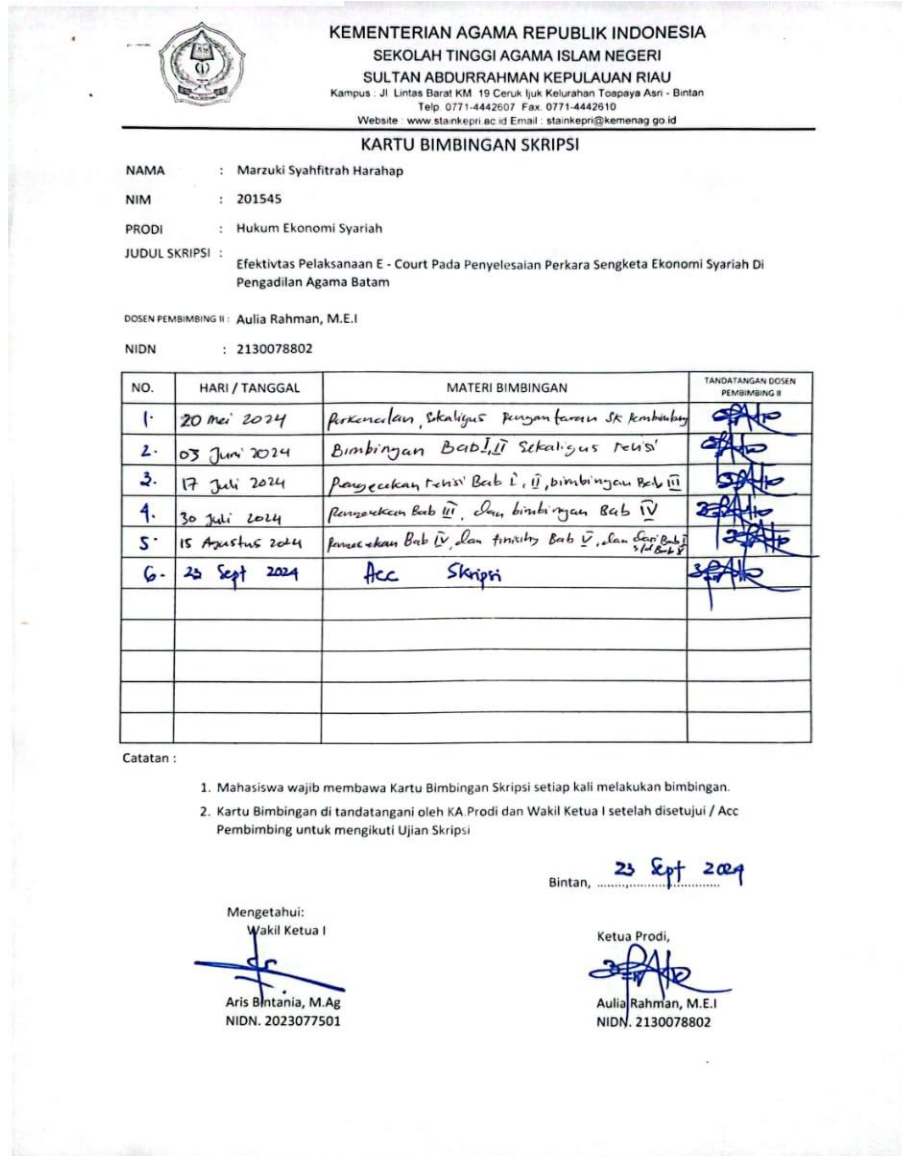 KEMENTERIAN AGAMA REPUBLIK INDONESIA
SEKOLAH TINGGI AGAMA ISLAM NEGERI
SULTAN ABDURRAHMAN KEPULAUAN RIAU
Kampus : Jl. Lintas Barat KM 19 Ceruk Ijuk Kelurahan Toapaya Asri - Bintan
Telp. 0771-4442607 Fax. 0771-4442610
Website : www.stainkepri.ac.id Email : stainkepri@kemenag.go.id
KARTU BIMBINGAN SKRIPSI
NAMA : Marzuki Syahfitrah Harahap
NIM : 201545
PRODI : Hukum Ekonomi Syariah
JUDUL SKRIPSI :
Efektivtas Pelaksanaan E - Court Pada Penyelesaian Perkara Sengketa Ekonomi Syariah Di
Pengadilan Agama Batam
DOSEN PEMBIMBING II : Aulia Rahman, M.E.I
NIDN : 2130078802
NO. HARI / TANGGAL MATERI BIMBINGAN TANDATANGAN DOSEN
PEMBIMBING II
1. 20 mei 2024 Perkenalan, Skaligus pengantaran SK Pembimbing
2. 03 Juni 2024 Bimbingan Bab I, II Sekaligus revisi
3. 17 Juli 2024 Pengecekan revisi Bab I, II, bimbingan Bab III
4. 30 Juli 2024 Bab III, dan bimbingan Bab IV
5. 15 Agustus 2024 Bab IV, dan Bab V, dan dari Bab I
s/d Bab V
6. 23 Sept 2024 Acc Skripsi
Catatan :
1. Mahasiswa wajib membawa Kartu Bimbingan Skripsi setiap kali melakukan bimbingan.
2. Kartu Bimbingan di tandatangani oleh KA.Prodi dan Wakil Ketua I setelah disetujui / Acc
Pembimbing untuk mengikuti Ujian Skripsi
Bintan, 23 Sept 2024
Mengetahui:
Wakil Ketua I
Ketua Prodi,
Aris Bintania, M.Ag
NIDN. 2023077501
Aulia Rahman, M.E.I
NIDN. 2130078802